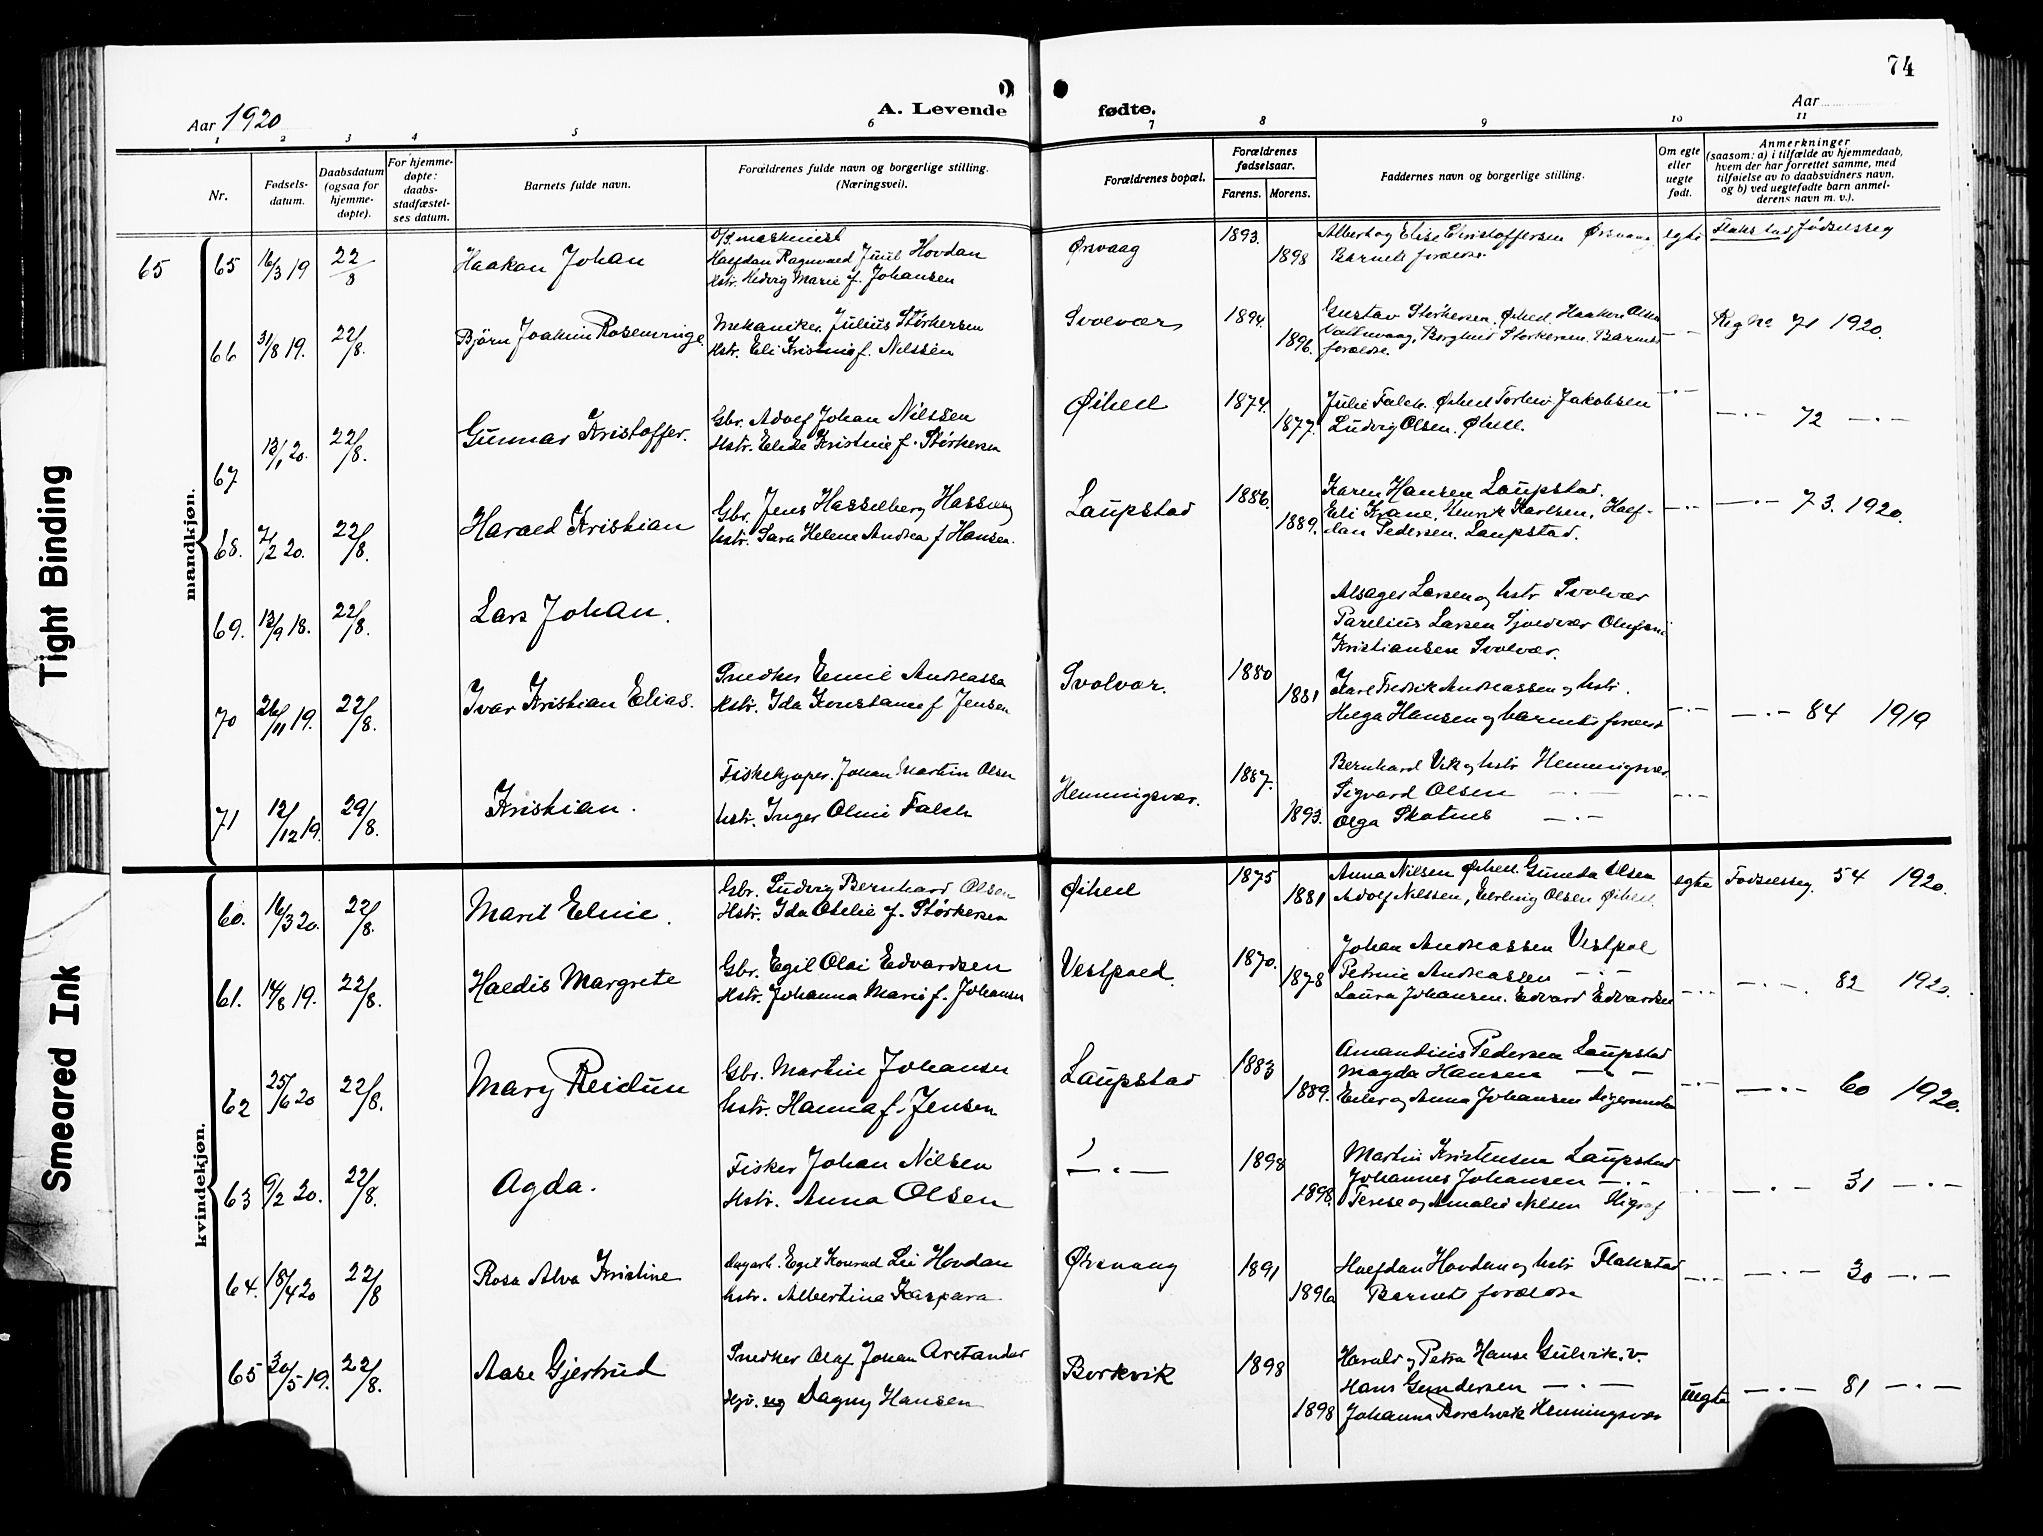 74
Aar 1920
A. Levende
fødte.
Aar
1 2 3 4 5 6 7 8 9 10 11
Nr.
Fødsels-
datum.
Daabsdatum
(ogsaa for
hjemme-
døpte).
For hjemme-
døpte:
daabs-
stadfæstel-
ses datum.
Barnets fulde navn.
Forældrenes fulde navn og borgerlige stilling.
(Næringsvei).
Forældrenes bopæl.
Forældrenes
fødselsaar.
Farens. Morens.
Faddernes navn og borgerlige stilling.
Om egte
eller
uegte
født.
Anmerkninger
(saasom: a) i tilfælde av hjemmedaab,
hvem der har forrettet samme, med
tilføielse av to daabsvidners navn,
og b) ved uegtefødte barn anmel-
derens navn m. v.).
mandkjøn.
65 65 16/3 19 22/8 Haakon Johan
D/S maskinist
Halfdan Ragnvald Juul Hovdan
Hstr. Hedvig Marie f. Johansen
Ørsvaag 1893. 1898
Albert og Elise Christoffersen Ørsvaag
Barnets forældre.
egte Flakstad fødselsreg
66 31/8 19. 22/8. Bjørn Joakim Rosenvinge
Mekaniker Julius Størkersen
Hstr. Eli Kristine f. Nilssen
Svolvær 1894. 1896.
Gustav Størkersen. Øihell. Haakon Olsen
Vatnvaag, Borghild Størkersen. Barnets
forældre.
— — Reg No 71 1920.
67 13/1 20. 22/8. Gunnar Kristoffer.
Gbr. Adolf Johan Nilssen
Hstr. Elida Kristine f. Størkersen
Øihell 1874. 1877.
Julie Falch. Øihell Torleiv Jakobsen
Ludvig Olsen. Øihell.
— . — — . — 72 — . —
68. 7/2 20. 22/8. Harald Kristian
Gbr. Jens Hasselberg Hassvaag
hstr. Sara Helene Andrea f Hansen.
Laupstad 1886. 1889.
Karen Hansen Laupstad.
Eli Krane. Henrik Karlsen, Half-
dan Pedersen. Laupstad.
— . — — . — 73. 1920.
69. 13/9 18. 22/8. Lars Johan.
Alsager Larsen og hstr Svolvær
Parelius Larsen Svolvær
Kristiansen Svolvær.
70 26/11 19. 22/8. Ivar Kristian Elias.
Snedker Emil Andreassen
Hstr. Ida Konstanse f Jensen
Svolvær. 1880 1881
Karl Fredrik Andreassen og hstr.
Helga Hansen og barnets foreld
— . — — . — 84 1919
71 12/12 19. 29/8. Kristian.
Fiskekjøper. Johan Martin Olsen
hstr. Inger Oline Falch
Henningsvær. 1887. 1893.
Bernhard Vik og hstr Henningsvær
Sigvard Olsen — . —
Olga Skotnes — . —
— . —
kvindekjøn.
60. 16/3 20. 22/8. Marit Eline.
Gbr. Ludvig Bernhard Olsen
Hstr. Ida Otelie f. Størkersen
Øihell 1875 1881
Anna Nilsen Øihell. Gunda Olsen
Adolf Nilssen, Erling Olsen Øihell.
egte Fødselsreg. 54 1920.
61. 14/8 19. 22/8. Haldis Margrete
Gbr. Egil Olai Edvardsen
Hstr. Johanna Marie f. Johansen
Vestpoll. 1870. 1878
Johan Andreassen Vestpol
Petrine Andreassen — . —
Laura Johansen. Edvard Edvardsen
— . — — . — 82 1920.
62 25/6 20 22/8. Mary Reidun
Gbr. Martin Johansen
hstr. Hanna f. Jensen
Laupstad 1883 1889.
Amandius Pedersen Laupstad
Magda Hansen — . —
Eiler og Anna Johansen
— . — — . — 60 1920.
63 9/2 20. 22/8. Agda.
Fisker Johan Nilsen
Hstr. Anna Olsen
— . — 1898 1898.
Martin Kristensen Laupstad
Johannes Johansen — . —
Terese og Amalie Nilsen
— . — — . — 31 — . —
64. 18/4 20 22/8 Rosa Alva Kristine
Dagarb. Egil Konrad Lie Hovdan
hstr. Albertina Kaspara
Ørsvaag 1891 1896
Halfdan Hovdan og hstr Flakstad
Barnets forældre
— . — — . — 30 — . —
65 30/5 19. 22/8. Aase Gjertrud
Snedker Olaf Johan Arctander
Dagny Hansen
Borkvik 1898 1898
Harald og Petra Hanse Gulvik. v.
Hans Gundersen — . —
Johanna Borchvik Henningsvær
uegte — . — 81 — . —
Tight Binding
Smeared Ink